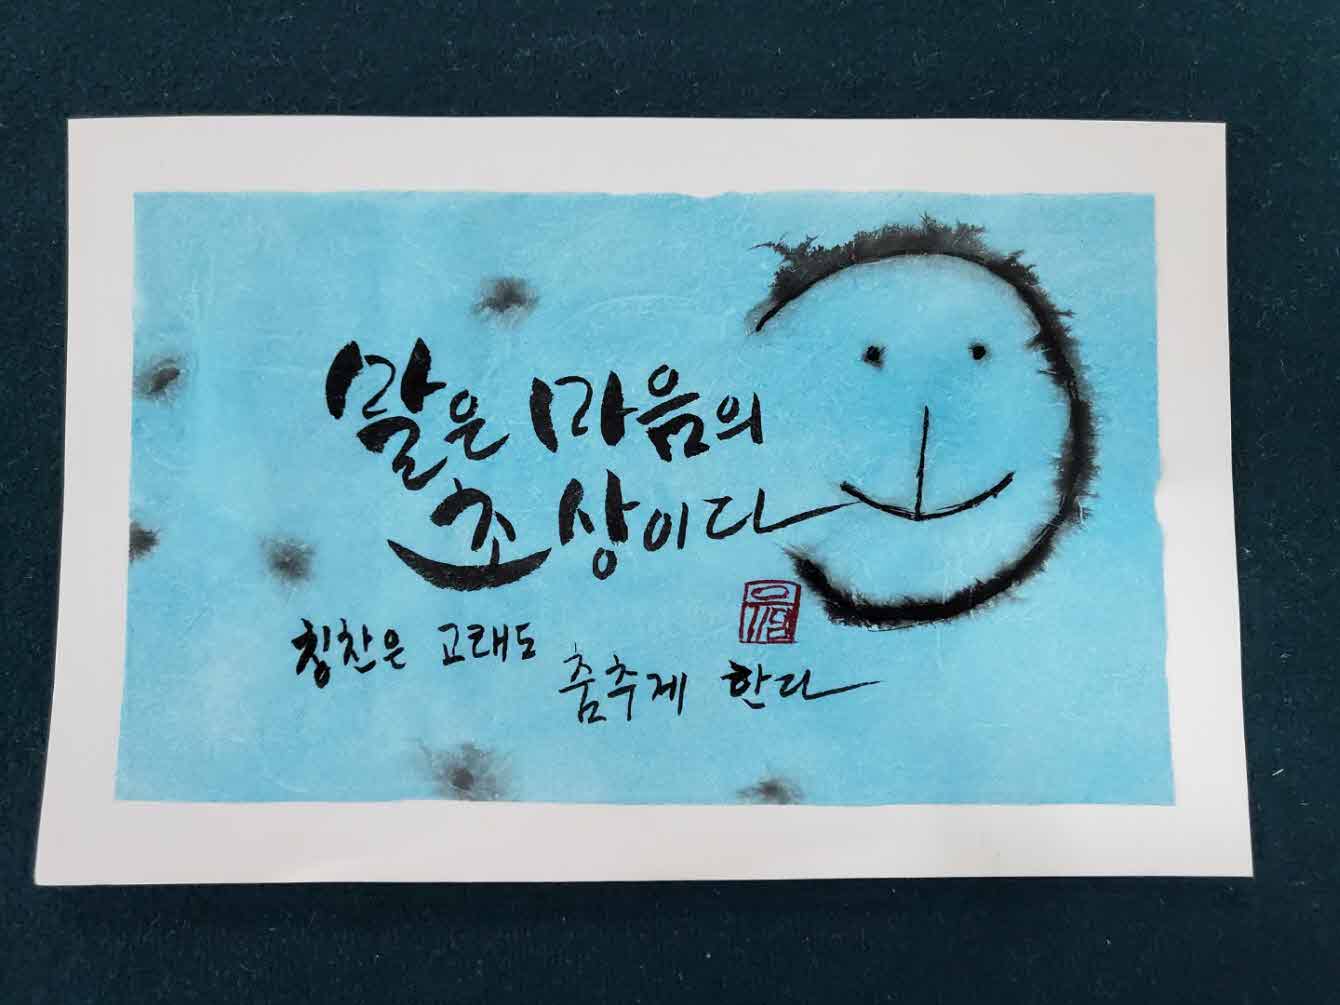 말은 마음의
초상이다
칭찬은 고래도
춤추게 한다